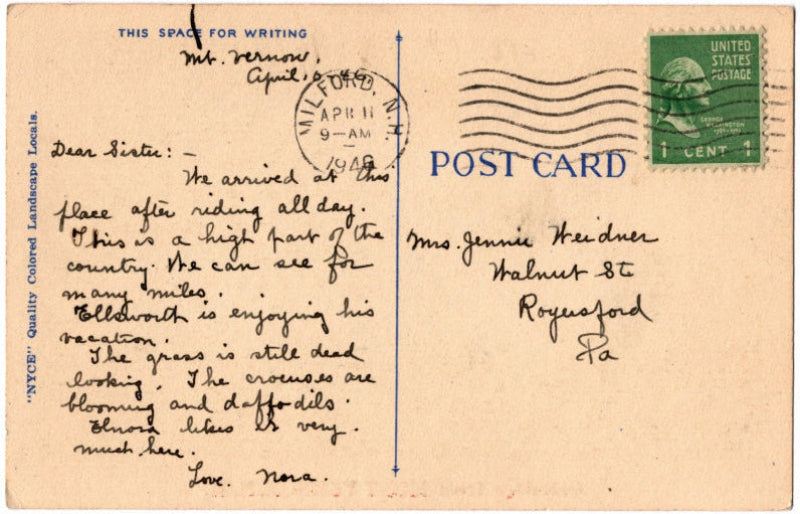 THIS SPACE FOR WRITING
Mt. Vernon,
April,
MILFORD, N.H.
APR 11
9-AM
1946
UNITED
STATES
POSTAGE
GEORGE
WASHINGTON
1 CENT 1
POST CARD
"NYCE" Quality Colored Landscape Locals.
Dear Sister: -
We arrived at this
place after riding all day.
This is a high part of the
country. We can see for
many miles.
Ellsworth is enjoying his
vacation.
The grass is still dead
looking. The crocuses are
blooming and daffodils.
Elnora likes it very
much here.
Love. Nora.
Mrs. Jennie Weidner
Walnut St
Royersford
Pa